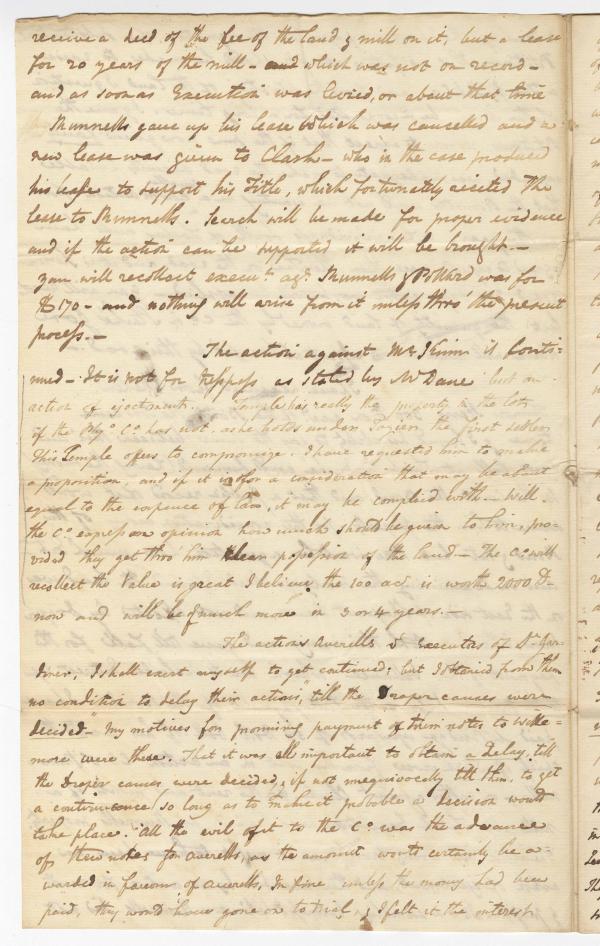 receive a deed of the fee of the land & mill on it, but a lease
for 20 years of the mill - and which was not on record -
and as soon as Execution was levied, or about that time
Munnells gave up his lease which was cancelled and a
new lease was given to Clark - who in the case produced
his lease to support his Title, which fortunately recited the
lease to Munnells. Search will be made for proper evidence
and if the action can be supported it will be brought. -
you will recollect execu.n ag.t Munnells & Pollard was for
170 - and nothing will arise from it unless thro' the present
process. -
The action against Mr. is Conti-
nued - It is not for tresspass as stated by Mr Dane but an
action of ejectment. Temple has really the property in the lot,
if the Co. has not. as he holds under Pozier the first settler
This Temple offers to compromise. I have requested him to make
a proposition, and if it is for a consideration that may be about
equal to the expence of law, it may be complied with - Will
the Co. express an opinion how much should be given to him, pro-
vided they get thro' him clean possession of the land - The Co. will
recollect the value is great I believe the 100 ac.s is worth 2000 D.
now and will be of much more in 3 or 4 years. -
The actions Averells & Executors of Dr. Gar-
diner, I shall exert myself to get continued; but I obtained from them
no condition to delay their actions, "till the Draper causes were
decided -" My motives for promising payment of their notes to
more were these. That it was all important to obtain a delay, till
the Draper causes were decided, if not unequivocally till then, to get
a continuance so long as to make it probable a decision would
take place. All the evil of it to the Co. was the advance
of these notes for Averells, as the amount would certainly be a-
warded in favour of Averells, In fine unless the money had been
paid, they would have gone on to trial, & I felt it the interest